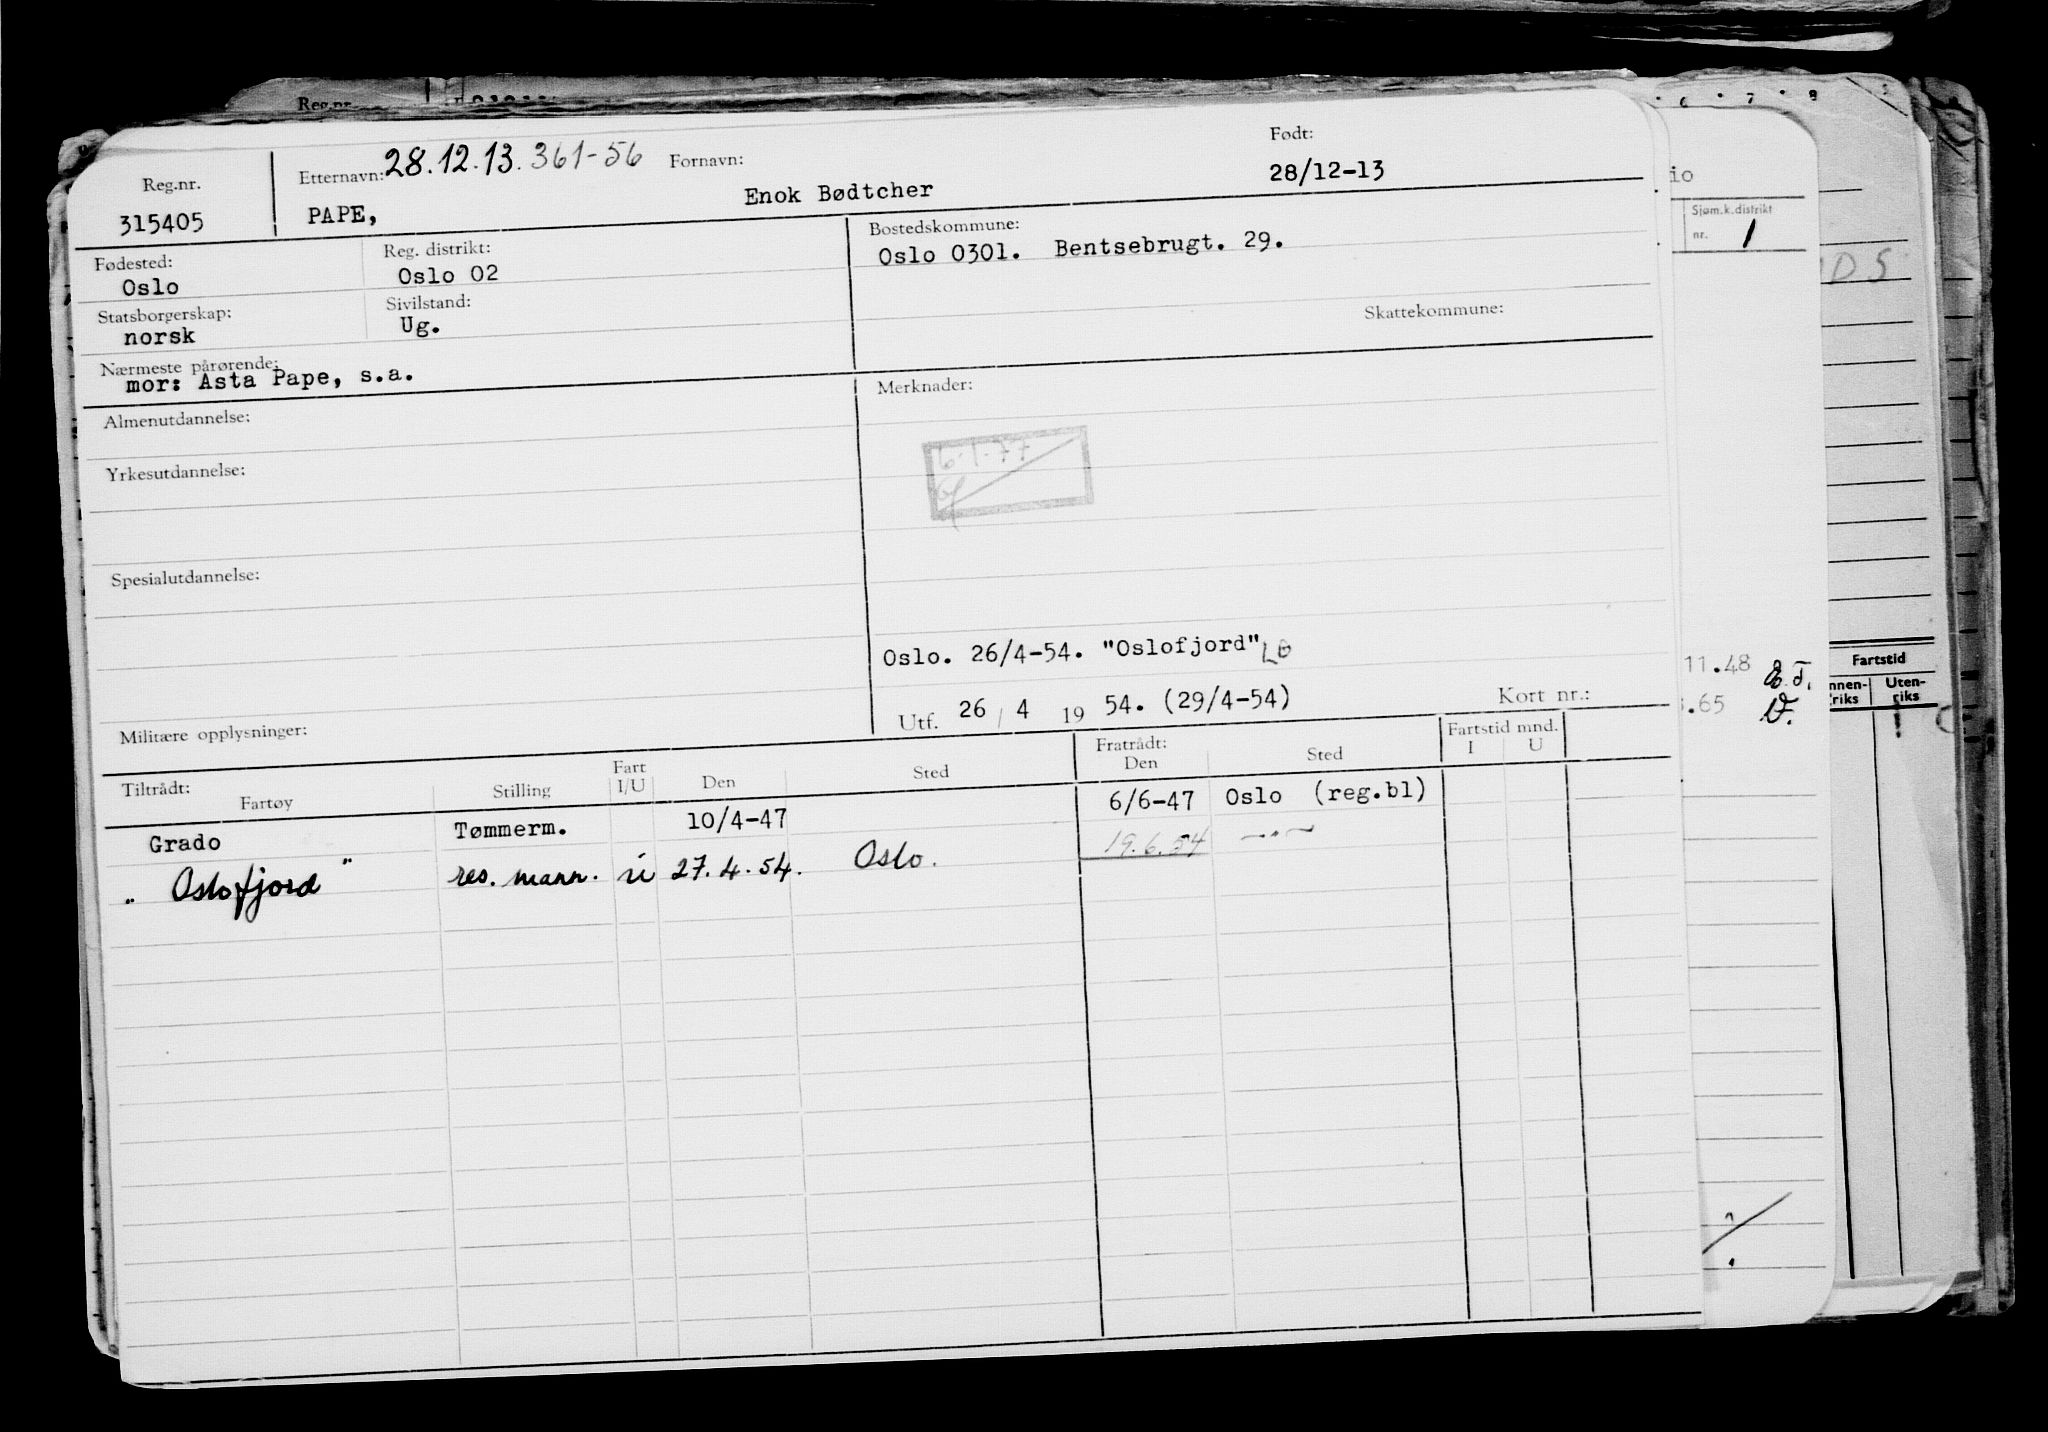 Reg.nr.
315405
Etternavn: 28.12.13. 361-56 Fornavn:
PAPE, Enok Bødtcher
Født:
28/12-13
Fødested:
Oslo
Reg. distrikt:
Oslo 02
Bostedskommune:
Oslo 0301. Bentsebrugt. 29.
Statsborgerskap:
norsk
Sivilstand:
Ug.
Skattekommune:
Nærmeste pårørende:
mor: Asta Pape, s.a.
Merknader:
6.1.77
Almenutdannelse:
Yrkesutdannelse:
Spesialutdannelse:
Oslo. 26/4-54. "Oslofjord" LO
Utf. 26 / 4 19 54. (29/4-54)
Kort nr.:
Militære opplysninger:
Tiltrådt:
Fartøy Stilling Fart I/U Den Sted
Fratrådt:
Den Sted
Fartstid mnd.
I U
Grado Tømmerm. 10/4-47 6/6-47 Oslo (reg.bl)
" Oslofjord " res. mann. u 27.4.54. Oslo. 19.6.54 —"—
Reg.nr.
6 . 7 . 8
io
Sjøm.k.distrikt
nr. 1
DS
11.48 E.T.
.65 D.
Fartstid
nnen-
riks
Uten-
riks